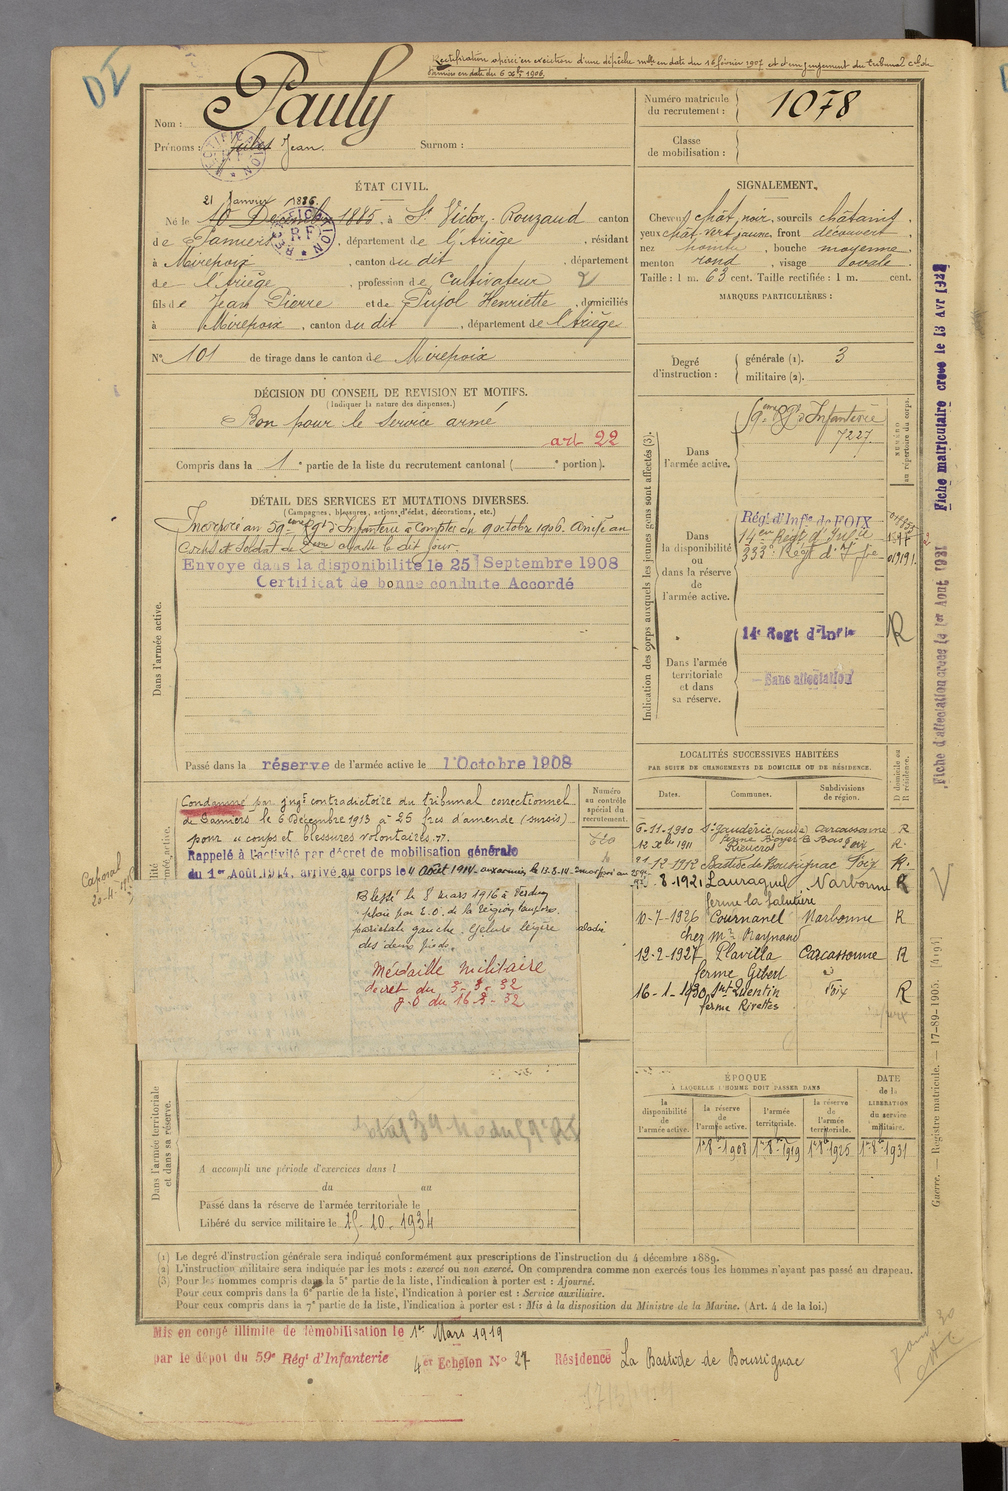 DI
Rectification opérée en exécution d'une dépêche mlle en date du 16 février 1907 et d'un jugement du tribunal c. de
Pamiers en date du 6 Xbre 1906.
Nom : Pauly
Prénoms : Jules Jean. Surnom :
Numéro matricule
du recrutement : 1078
Classe
de mobilisation :
ÉTAT CIVIL.
21 Janvier 1886.
Né le 10 Décembre 1885, à St Victor-Rouzaud canton
de Pamiers, département de l'Ariège, résidant
à Mirepoix, canton du dit, département
de l'Ariège, profession de Cultivateur
fils de Jean Pierre et de Pujol Henriette, domiciliés
à Mirepoix, canton du dit, département de l'Ariège
N° 101 de tirage dans le canton de Mirepoix
SIGNALEMENT.
Cheveux chât. noir, sourcils châtains,
yeux chât. vert jaune, front découvert,
nez , bouche moyenne,
menton rond, visage ovale.
Taille : 1 m. 63 cent. Taille rectifiée : 1 m. cent.
MARQUES PARTICULIÈRES :
Degré
d'instruction :
générale (1). 3
militaire (2).
DÉCISION DU CONSEIL DE REVISION ET MOTIFS.
(Indiquer la nature des dispenses.)
Bon pour le service armé
art 22
Compris dans la 1e partie de la liste du recrutement cantonal ( e portion).
DÉTAIL DES SERVICES ET MUTATIONS DIVERSES.
(Campagnes, blessures, actions d'éclat, décorations, etc.)
Dans l'armée active.
Incorporé au 59ème Rgt d'Infanterie à compter du 9 octobre 1906. Arrivé au
Corps et Soldat de 2ème classe le dit jour.
Envoyé dans la disponibilité le 25 Septembre 1908
Certificat de bonne conduite Accordé
Passé dans la réserve de l'armée active le 1 Octobre 1908
Indication des corps auxquels les jeunes gens sont affectés (3).
NUMÉRO
au répertoire du corps.
Dans
l'armée active.
59ème Rgt d'Infanterie
7227.
Dans
la disponibilité
ou
dans la réserve
de
l'armée active.
Régt d'Infie de FOIX
14em Régt d'Infie
333e Régt d'Infie
Dans l'armée
territoriale
et dans
sa réserve.
14e Regt d'Infie
R
Sans affectation
Condamné par jugt contradictoire du tribunal correctionnel
de Pamiers le 6 Décembre 1913 à 25 frcs d'amende (sursis)
pour "coups et blessures volontaires".
Rappelé à l'activité par décret de mobilisation générale
du 1er Août 1914, arrivé au corps le 4 Août 1914
Caporal
20-4-1915
Blessé le 8 mars 1916 à Verdun
plaie par E.O. de la région temporo
pariétale gauche. Gelure légère
des deux pieds.
Médaille militaire
décret du 3-3-32
J.O du 16-3-32
Numéro
au contrôle
spécial du
recrutement.
LOCALITÉS SUCCESSIVES HABITÉES
PAR SUITE DE CHANGEMENTS DE DOMICILE OU DE RÉSIDENCE.
Dates. Communes. Subdivisions
de région. D domicile ou
R résidence.
6-11-1910 St Gaudéric (Aude) Carcassonne R
12 Xbre 1911 ferme Boyer le Bosc Foix R.
Rieucros
21-12-1912 Bastide de Bousignac Foix R.
8-1921 Lauraguel Narbonne R
10-7-1926 Cournanel Narbonne R
chez Mr Raynaud
12-2-1927 Plavilla Carcassonne R
ferme Gibert
16-1-1930 St Quentin Foix R
ferme Rivettes
ÉPOQUE
À LAQUELLE L'HOMME DOIT PASSER DANS
DATE
de la
LIBÉRATION
du service
militaire.
la
disponibilité
de
l'armée active.
la réserve
de
l'armée active.
l'armée
territoriale.
la réserve
de
l'armée
territoriale.
1er 8bre 1908 1er 8bre 1919 1er 8bre 1925 1er 8bre 1931
Dans l'armée territoriale
et dans sa réserve.
A accompli une période d'exercices dans l
du au
Passé dans la réserve de l'armée territoriale le
Libéré du service militaire le 15-10-1934
(1) Le degré d'instruction générale sera indiqué conformément aux prescriptions de l'instruction du 4 décembre 1889.
(2) L'instruction militaire sera indiquée par les mots : exercé ou non exercé. On comprendra comme non exercés tous les hommes n'ayant pas passé au drapeau.
(3) Pour les hommes compris dans la 5e partie de la liste, l'indication à porter est : Ajourné.
Pour ceux compris dans la 6e partie de la liste, l'indication à porter est : Service auxiliaire.
Pour ceux compris dans la 7e partie de la liste, l'indication à porter est : Mis à la disposition du Ministre de la Marine. (Art. 4 de la loi.)
Mis en congé illimité de démobilisation le 1er Mars 1919
par le dépôt du 59e Régt d'Infanterie 4er Echelon N° 27 Résidence La Bastide de Bousignac
Fiche d'affectation créée le 1er Août 1921
Fiche matriculaire créée le 13 Avr 1922
Guerre. — Registre matricule. — 17-89-1905. [4194]